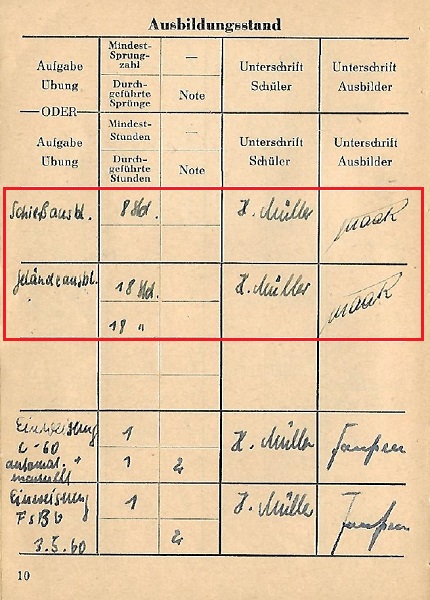 Ausbildungsstand
Aufgabe
Übung
Mindest-
Sprung-
zahl
—
Unterschrift
Schüler
Unterschrift
Ausbilder
Durch-
geführte
Sprünge
Note
ODER
Aufgabe
Übung
Mindest-
Stunden
—
Unterschrift
Schüler
Unterschrift
Ausbilder
Durch-
geführte
Stunden
Note
Schießausbl. 8 Std. H. Müller
Geländeausbl. 18 Std. H. Müller
18 "
Einweisung 1 H. Müller
automat. + 1 2
manuell
Einweisung 1 H. Müller
3.5.60 2
10